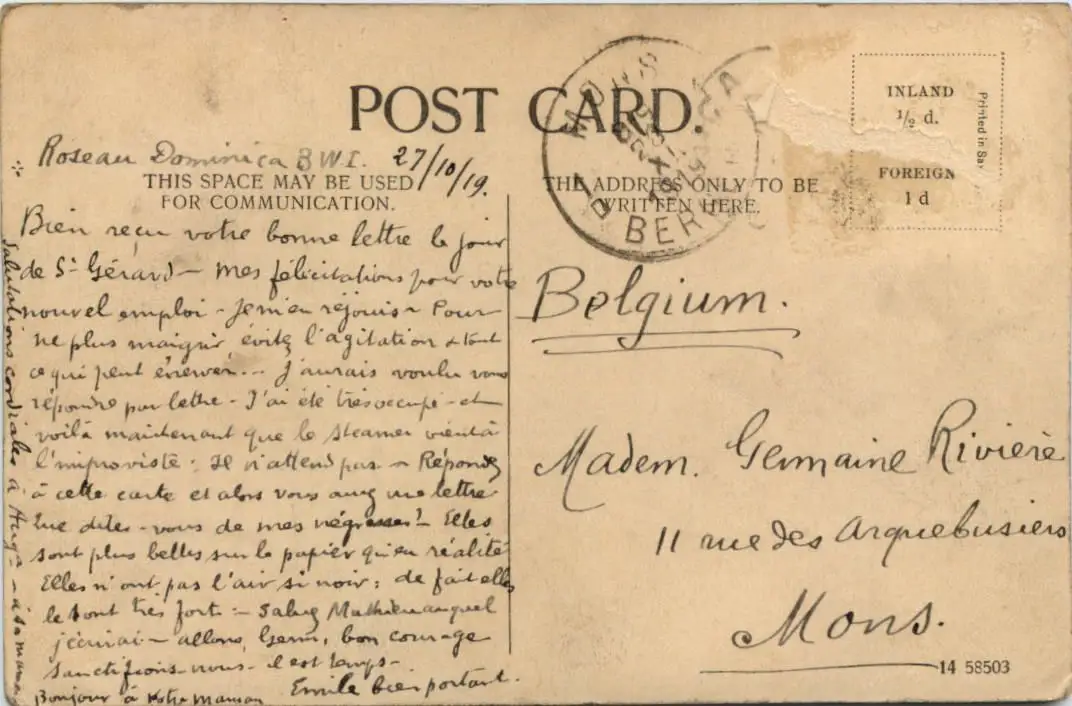 POST CARD.
Roseau Dominica B.W.I. 27/10/19.
THIS SPACE MAY BE USED
FOR COMMUNICATION.
THE ADDRESS ONLY TO BE
WRITTEN HERE.
INLAND
½ d.
FOREIGN
1 d
Printed in Sax
MONS
BERG
Bien reçu votre bonne lettre le jour
de St Gérard – mes félicitations pour votre
nouvel emploi – Je m'en réjouis – Pour
ne plus maigrir, évitez l'agitation & tout
ce qui peut énerver... J'aurais voulu vous
répondre par lettre – J'ai été très occupé – et
voilà maintenant que le steamer vient à
l'improviste : Il n'attend pas – Répondez
à cette carte et alors vous aurez une lettre
Que dites-vous de mes négresses? Elles
sont plus belles sur le papier qu'en réalité
Elles n'ont pas l'air si noir : de fait elles
le sont très fort – Saluez Mathieu auquel
j'écrirai – allons, Germ, bon courage
sanctifions-nous – il est temps –
Bonjour à votre maman Emile bien portant.
Salutations cordiales à – à sa maman
Belgium.
Madem. Germaine Rivière
11 rue des Arquebusiers
Mons.
14 58503